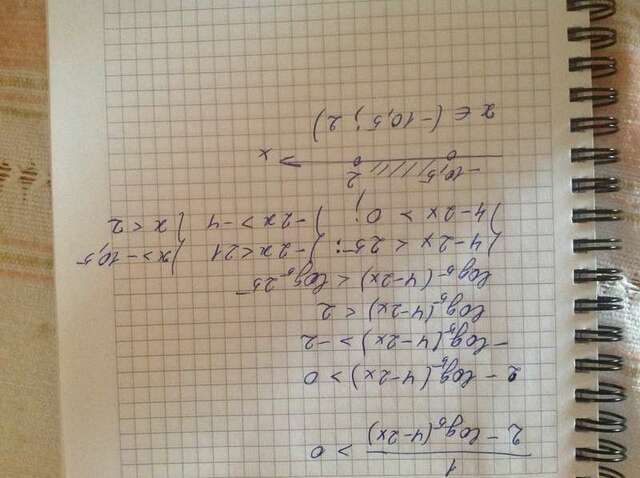 1 / (2 - log₅(4-2x)) > 0
2 - log₅(4-2x) > 0
-log₅(4-2x) > -2
log₅(4-2x) < 2
log₅(4-2x) < log₅ 25
{ 4-2x < 25; { -2x < 21 { x > -10,5
{ 4-2x > 0; { -2x > -4 { x < 2
-10,5 2
x
x ∈ (-10,5; 2)